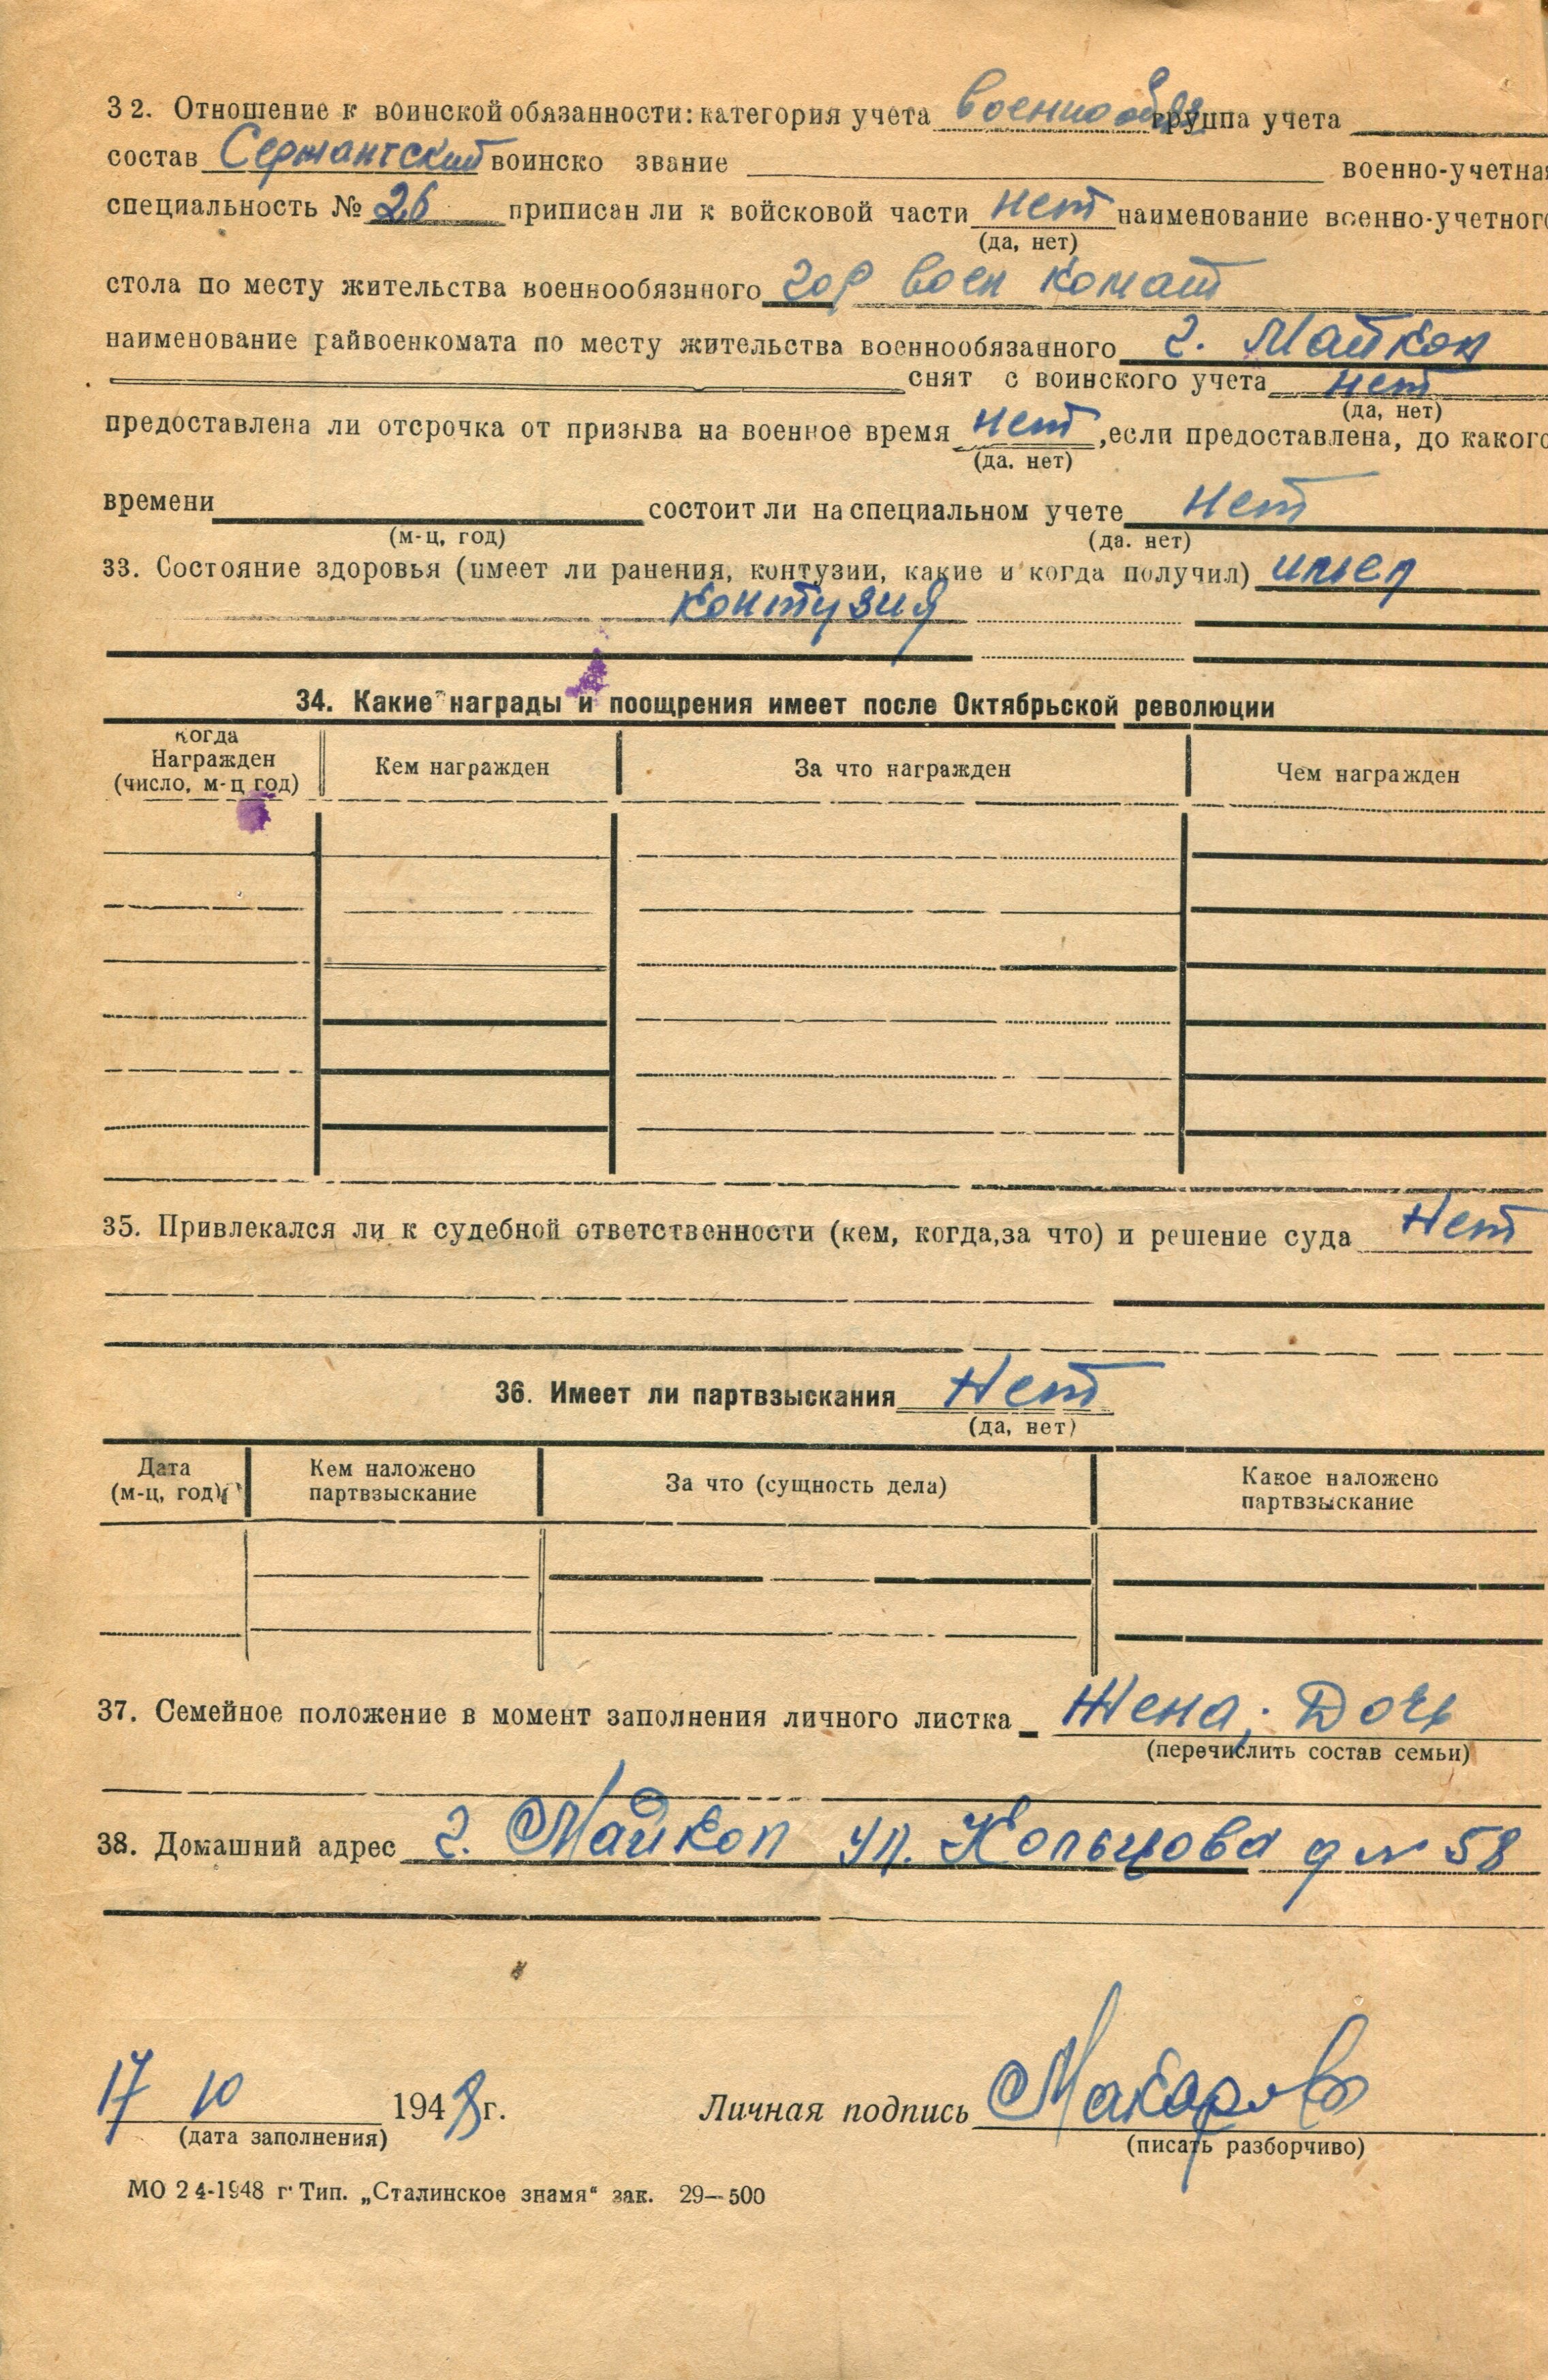 32. Отношение к воинской обязанности: категория учета военнообяз группа учета
состав Сержантский воинско звание военно-учетна
специальность № 26 приписан ли к войсковой части нет наименование военно-учетног
(да, нет)
стола по месту жительства военнообязнного гор воен комат
наименование райвоенкомата по месту жительства военнообязанного г. Майкоп
снят с воинского учета нет
(да, нет)
предоставлена ли отсрочка от призыва на военное время нет, если предоставлена, до какого
(да. нет)
времени состоит ли на специальном учете нет
(м-ц, год) (да. нет)
33. Состояние здоровья (имеет ли ранения, контузии, какие и когда получил) имел
контузия
34. Какие награды и поощрения имеет после Октябрьской революции
когда
Награжден
(число, м-ц год)
Кем награжден
За что награжден
Чем награжден
35. Привлекался ли к судебной ответственности (кем, когда, за что) и решение суда Нет
36. Имеет ли партвзыскания Нет
(да, нет)
Дата
(м-ц, год)
Кем наложено
партвзыскание
За что (сущность дела)
Какое наложено
партвзыскание
37. Семейное положение в момент заполнения личного листка Жена, Дочь
(перечислить состав семьи)
38. Домашний адрес г. Майкоп ул. Кольцова д № 58
17 10 1948 г. Личная подпись Макаров
(дата заполнения) (писать разборчиво)
МО 24-1948 г. Тип. „Сталинское знамя“ зак. 29—500